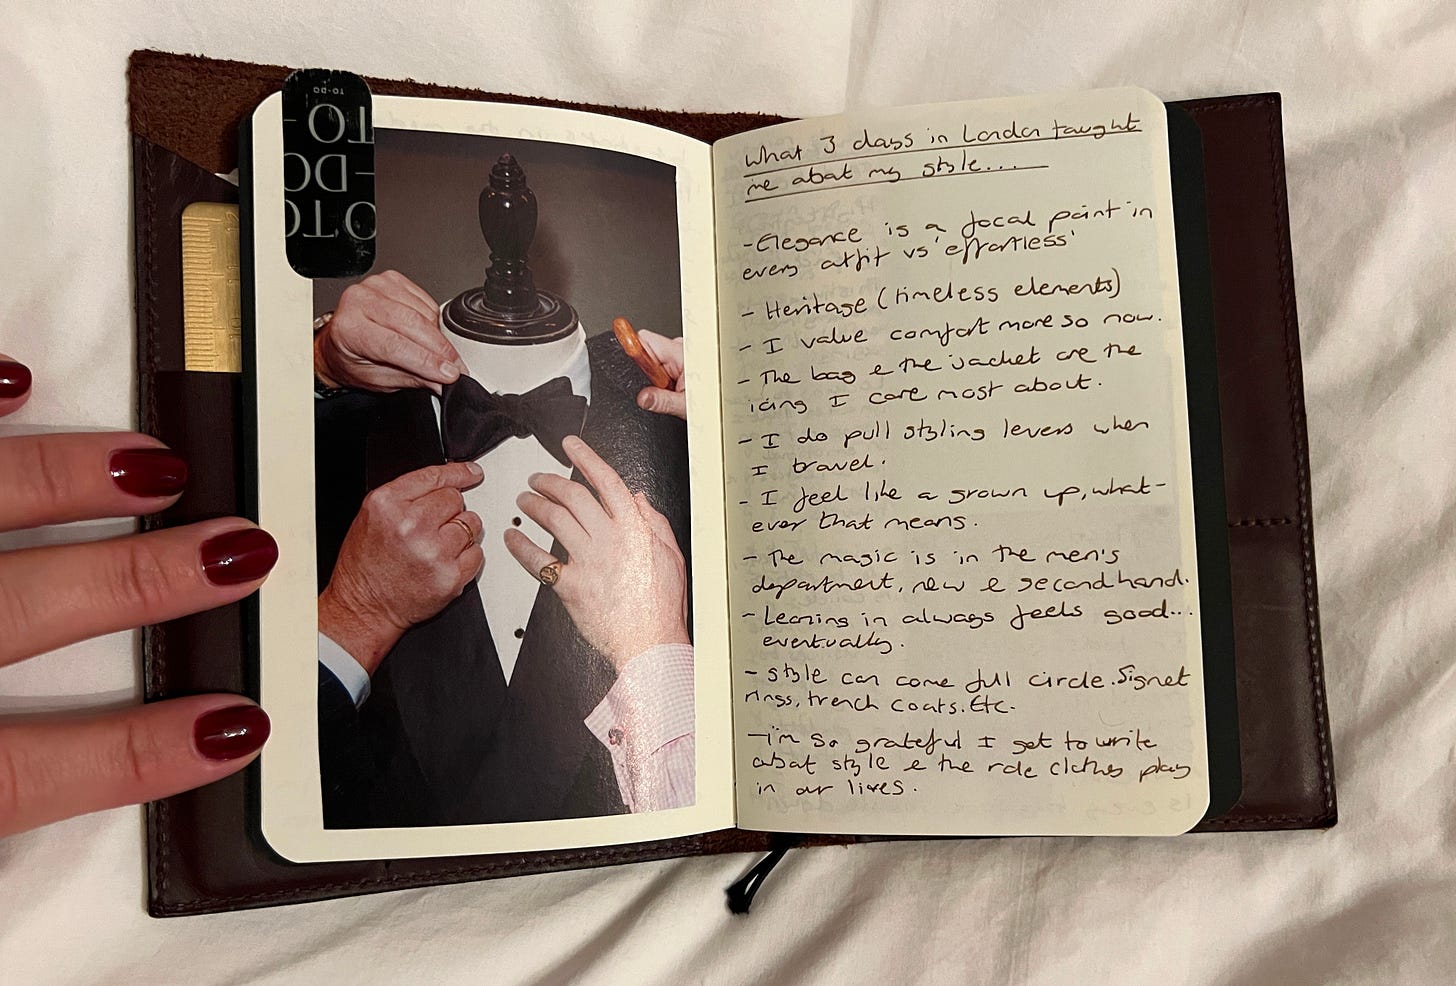 TO-DO
TO-
DO-
TO
What 3 days in London taught
me about my style....
- Elegance is a focal point in
every outfit vs 'effortless'
- Heritage (timeless elements)
- I value comfort more so now.
- The bag & the jacket are the
icing I care most about.
- I do pull styling levers when
I travel.
- I feel like a grown up, what-
ever that means.
- The magic is in the men's
department, new & secondhand.
- Leaning in always feels good...
eventually.
- Style can come full circle. Signet
rings, trench coats. Etc.
- I'm so grateful I get to write
about style & the role clothes play
in our lives.